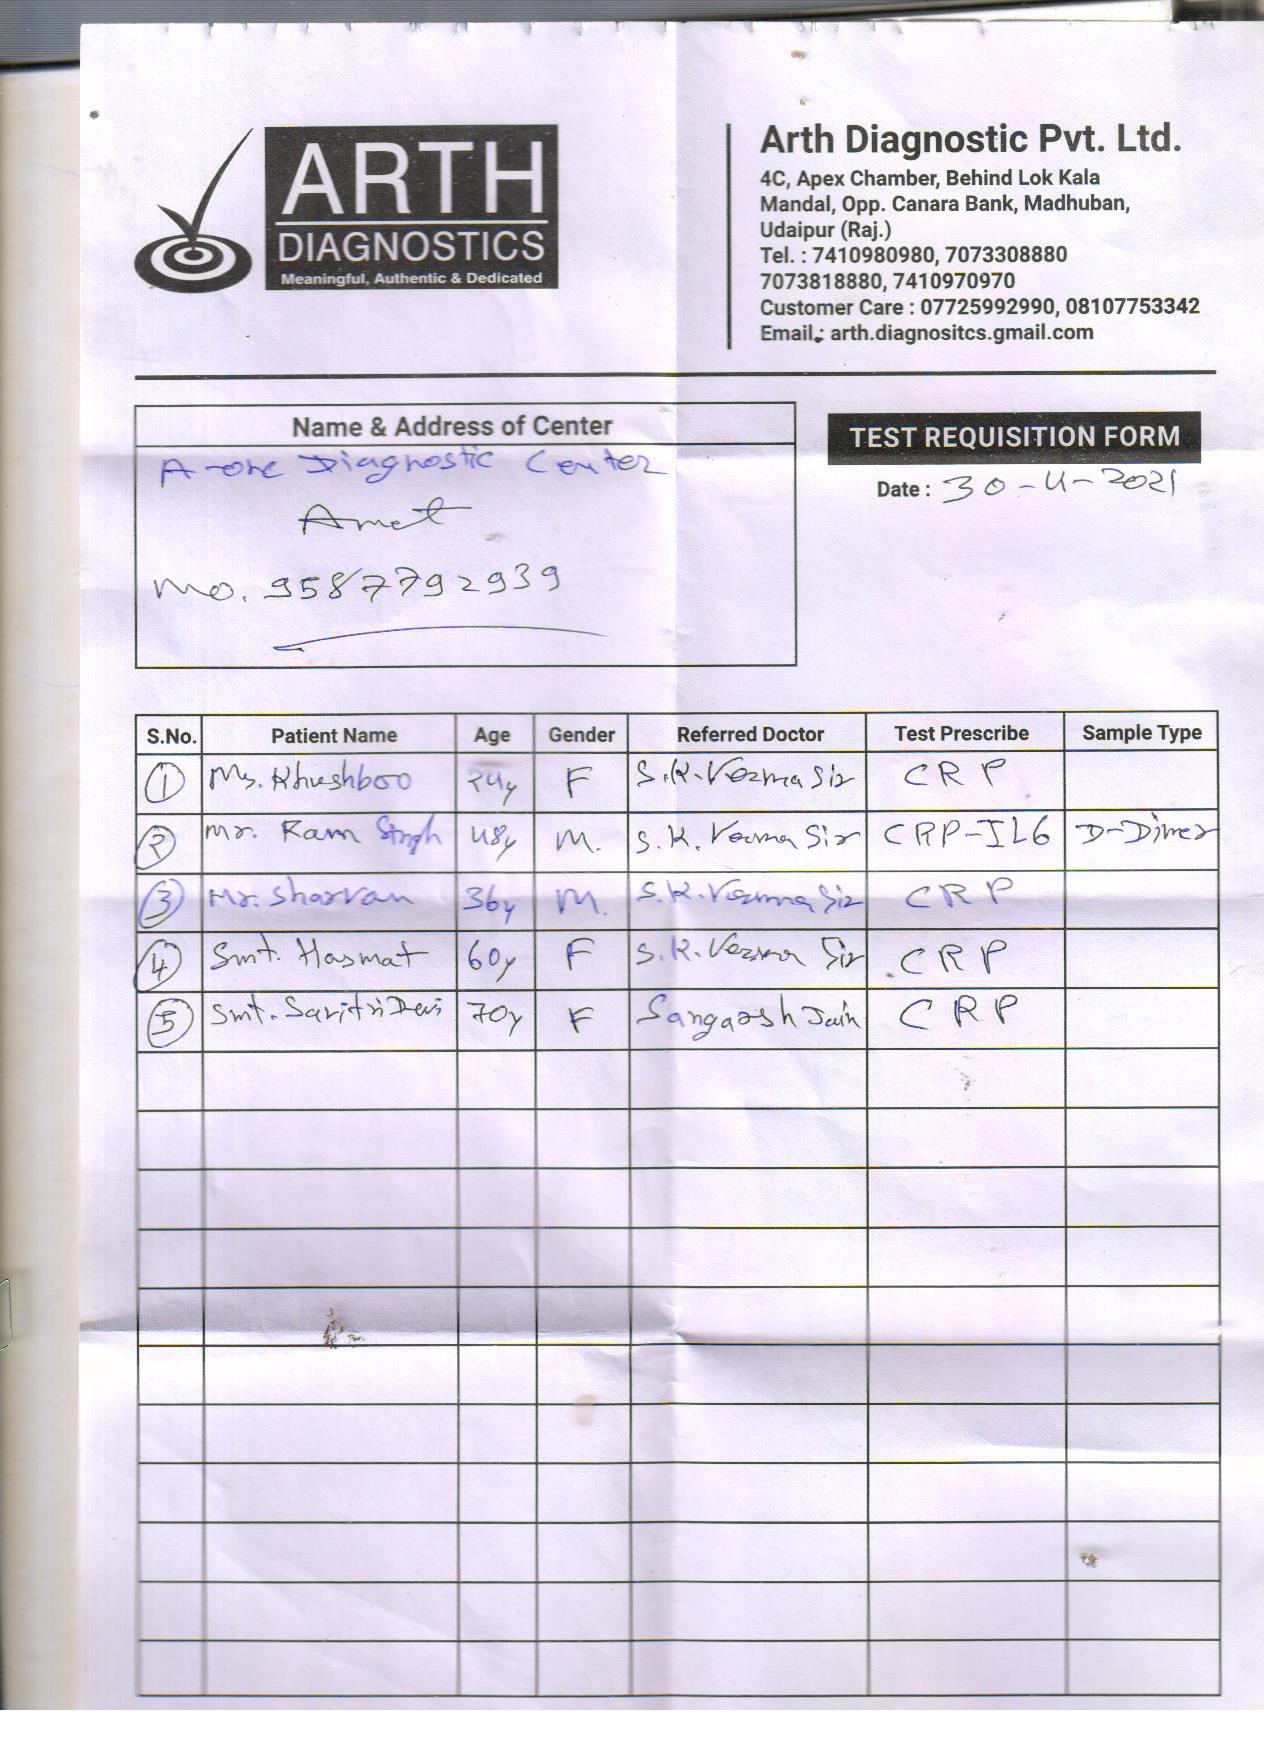 ARTH
DIAGNOSTICS
Meaningful, Authentic & Dedicated
Arth Diagnostic Pvt. Ltd.
4C, Apex Chamber, Behind Lok Kala
Mandal, Opp. Canara Bank, Madhuban,
Udaipur (Raj.)
Tel. : 7410980980, 7073308880
7073818880, 7410970970
Customer Care : 07725992990, 08107753342
Email : arth.diagnositcs.gmail.com
Name & Address of Center
A-one Diagnostic Center
Amet
Mo. 9587792939
TEST REQUISITION FORM
Date : 30-4-2021
S.No. Patient Name Age Gender Referred Doctor Test Prescribe Sample Type
1 Ms. Khushboo 24y F S.K. Verma Sir CRP
2 Mr. Ram Singh 48y M. S.K. Verma Sir CRP-IL6 D-Dimer
3 Mr. Sharvan 36y M. S.K. Verma Sir CRP
4 Smt. Hasmat 60y F S.K. Verma Sir CRP
5 Smt. Savitri Devi 70y F Sangarsh Jain CRP